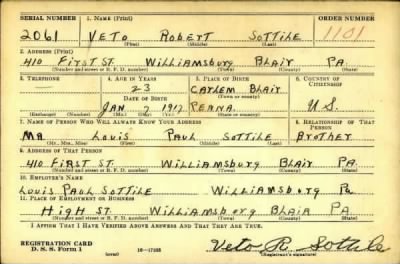 SERIAL NUMBER 1. NAME (Print) ORDER NUMBER
2061 VETO ROBERT SOTTILE 1101
(First) (Middle) (Last)
2. ADDRESS (Print)
410 FIRST ST. WILLIAMSBURG BLAIR PA.
(Number and street or R. F. D. number) (Town) (County) (State)
3. TELEPHONE 4. AGE IN YEARS 5. PLACE OF BIRTH 6. COUNTRY OF CITIZENSHIP
— 23 BLAIR
DATE OF BIRTH (Town or county)
JAN 7 1917 PENNA. U.S.
(Exchange) (Number) (Mo.) (Day) (Yr.) (State or country)
7. NAME OF PERSON WHO WILL ALWAYS KNOW YOUR ADDRESS 8. RELATIONSHIP OF THAT PERSON
MR LOUIS PAUL SOTTILE BROTHER
(Mr., Mrs., Miss) (First) (Middle) (Last)
9. ADDRESS OF THAT PERSON
410 FIRST ST. WILLIAMSBURG BLAIR PA.
(Number and street or R. F. D. number) (Town) (County) (State)
10. EMPLOYER'S NAME
LOUIS PAUL SOTTILE WILLIAMSBURG Pa
11. PLACE OF EMPLOYMENT OR BUSINESS
HIGH ST. WILLIAMSBURG BLAIR PA.
(Number and street or R. F. D. number) (Town) (County) (State)
I AFFIRM THAT I HAVE VERIFIED ABOVE ANSWERS AND THAT THEY ARE TRUE.
REGISTRATION CARD
D. S. S. Form 1 (over) 16—17105 Veto R. Sottile
(Registrant's signature)